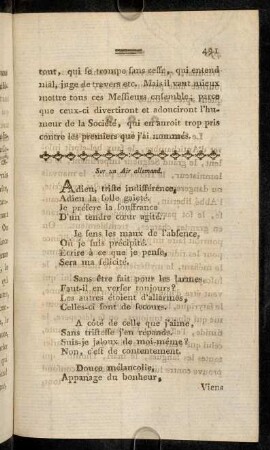 491
tout, qui se trompe sans cesse, qui entend
mal, juge de travers etc. Mais il vaut mieux
mettre tous ces Messieurs ensemble; parce
que ceux-ci divertiront et adouciront l'hu-
meur de la Société, qui en auroit trop pris
contre les premiers que j'ai nommés.
Sur un Air allemand.
Adieu, triste indifférence,
Adieu la folle gaieté,
Je préfere la souffrance
D'un tendre cœur agité..
Je sens les maux de l'absence,
Où je suis précipité..
Ecrire à ce que je pense,
Sera ma félicité.
Sans être fait pour les larmes
Faut-il en verser toujours?
Les autres étoient d'allarmes,
Celles-ci sont de secours.
A côté de celle que j'aime,
Sans tristesse j'en répands.
Suis-je jaloux de moi-même?
Non, c'est de contentement.
Douce mélancolie,
Appanage du bonheur,
Viens